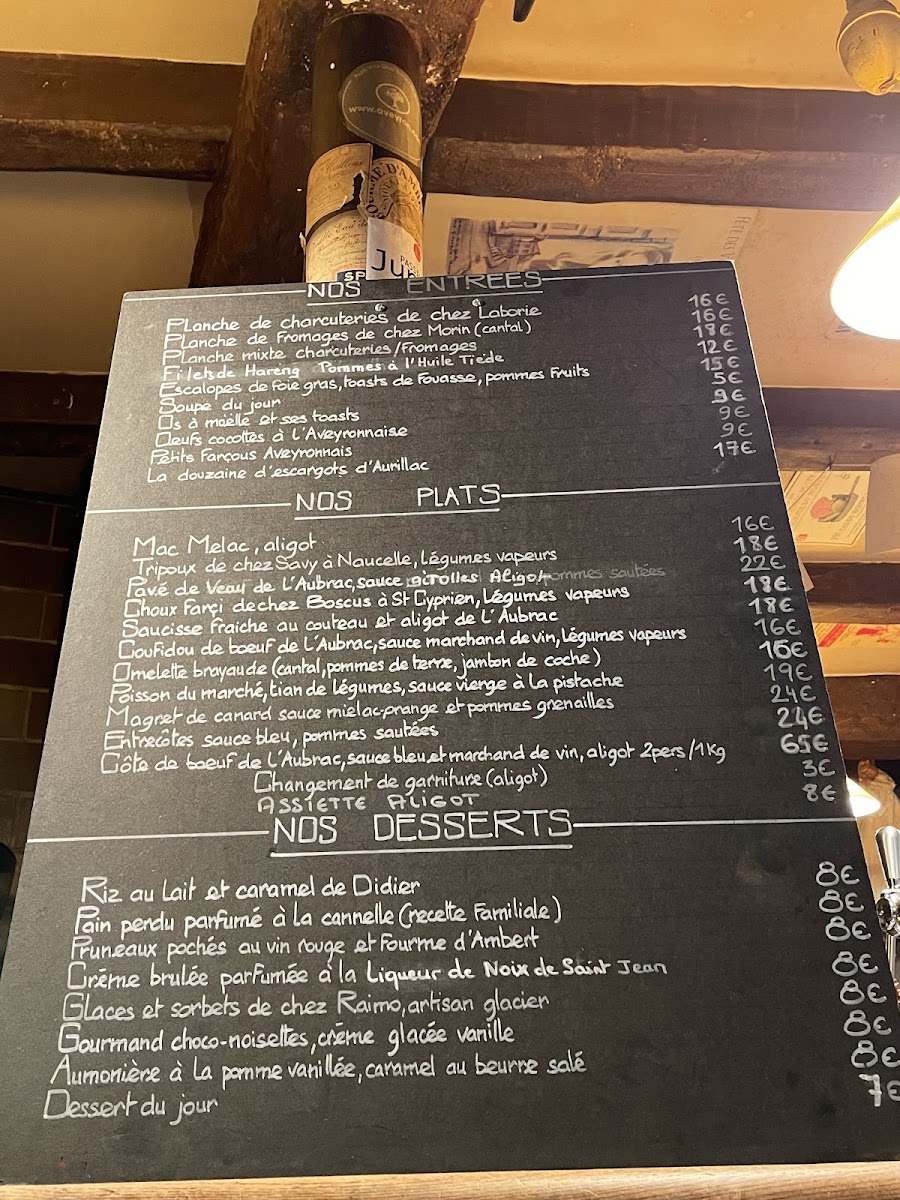 www.aveyr
FOURME D'AM
SP
PAS
Ju
FÊTE DES
NOS ENTREES
Planche de charcuteries de chez Laborie 16€
Planche de Fromages de chez Morin (cantal) 16€
Planche mixte charcuteries/Fromages 18€
Filets de Hareng Pommes à l'Huile Tiède 12€
Escalopes de foie gras, toasts de Fouasse, pommes fruits 15€
Soupe du jour 5€
Os à moëlle et ses toasts 9€
Oeufs cocottes à l'Aveyronnaise 9€
Petits Farçous Aveyronnais 9€
La douzaine d'escargots d'Aurillac 17€
NOS PLATS
Mac Melac, aligot 16€
Tripoux de chez Savy à Naucelle, Légumes vapeurs 18€
Pavé de Veau de L'Aubrac, sauce Girolles Aligot pommes sautées 22€
Choux Farçi de chez Boscus à St Cyprien, Légumes vapeurs 18€
Saucisse Fraiche au couteau et aligot de L'Aubrac 18€
Coufidou de boeuf de L'Aubrac, sauce marchand de vin, Légumes vapeurs 16€
Omelette brayaude (cantal, pommes de terre, jambon de coche) 16€
Poisson du marché, tian de légumes, sauce vierge à la pistache 19€
Magret de canard sauce miel-orange et pommes grenailles 24€
Entrecôtes sauce bleu, pommes sautées 24€
Côte de boeuf de L'Aubrac, sauce bleu et marchand de vin, aligot 2pers/1Kg 65€
Changement de garniture (aligot) 3€
ASSIETTE ALIGOT 8€
NOS DESSERTS
Riz au Lait et caramel de Didier 8€
Pain perdu parfumé à la cannelle (recette Familiale) 8€
Pruneaux pochés au vin rouge et Fourme d'Ambert 8€
Crème brulée parfumée à la Liqueur de Noix de Saint Jean 8€
Glaces et sorbets de chez Raimo, artisan glacier 8€
Gourmand choco-noisettes, crème glacée vanille 8€
Aumonière à la pomme vanillée, caramel au beurre salé 8€
Dessert du jour 7€